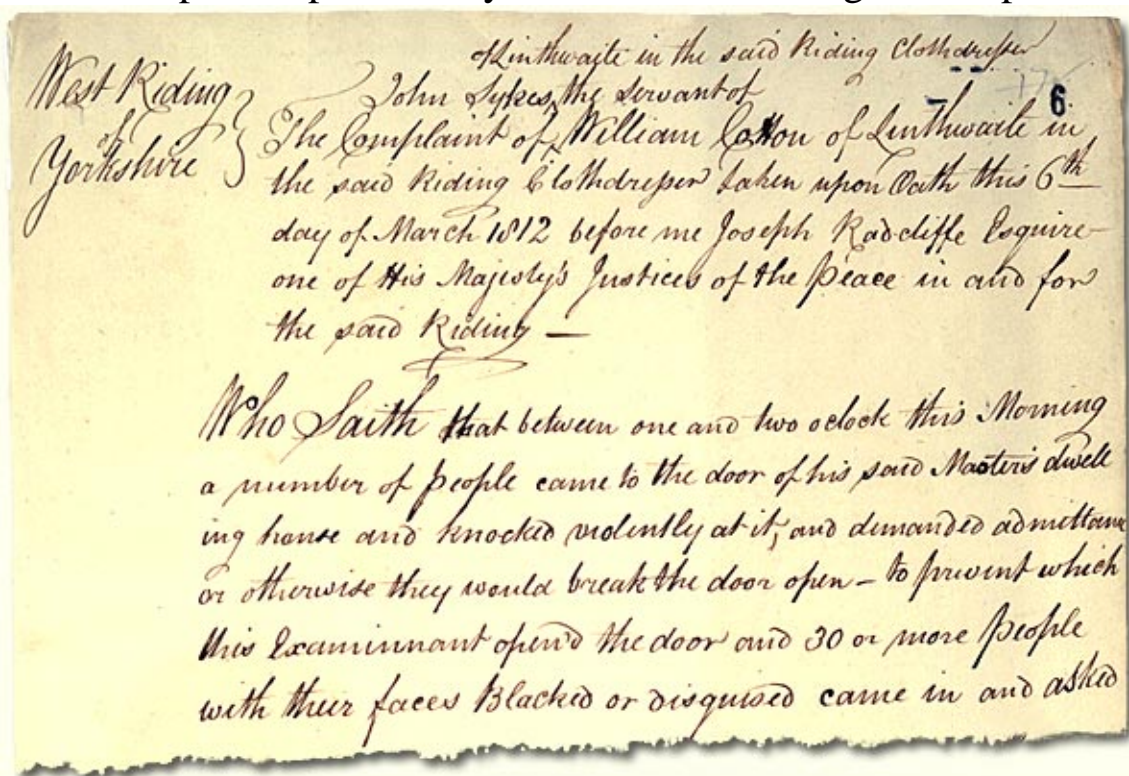 Linthwaite in the said Riding Clothdresser
West Riding
of
Yorkshire
6
John Sykes, the Servant of
The Complaint of William Cotton of Linthwaite in
the said Riding Clothdresser taken upon Oath this 6th
day of March 1812 before me Joseph Radcliffe Esquire
one of His Majesty's Justices of the Peace in and for
the said Riding —
Who Saith that between one and two oclock this Morning
a number of People came to the door of his said Master's dwell
ing house and knocked violently at it, and demanded admittance
or otherwise they would break the door open – to prevent which
this Examinnant open'd the door and 30 or more People
with their faces Blacked or disguised came in and asked